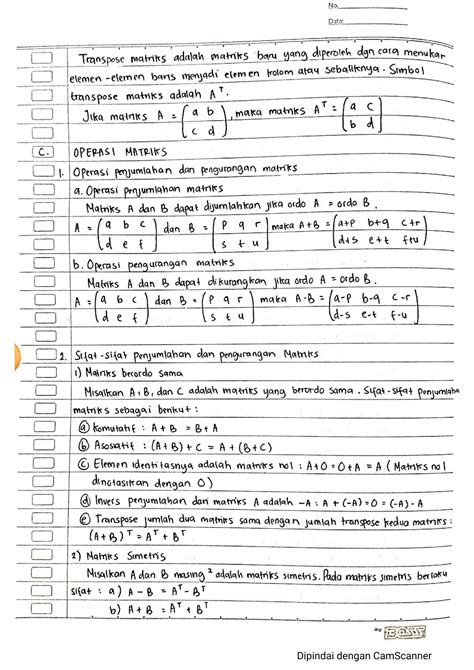 No.
Date:
Transpose matriks adalah matriks baru yang diperoleh dgn cara menukar
elemen-elemen baris menjadi elemen kolom atau sebaliknya. Simbol
transpose matriks adalah Aᵀ.
Jika matriks A = (a b / c d), maka matriks Aᵀ = (a c / b d)
C. OPERASI MATRIKS
1. Operasi penjumlahan dan pengurangan matriks
a. Operasi penjumlahan matriks
Matriks A dan B dapat dijumlahkan jika ordo A = ordo B.
A = (a b c / d e f) dan B = (p q r / s t u) maka A+B = (a+p b+q c+r / d+s e+t f+u)
b. Operasi pengurangan matriks
Matriks A dan B dapat dikurangkan jika ordo A = ordo B.
A = (a b c / d e f) dan B = (p q r / s t u) maka A-B = (a-p b-q c-r / d-s e-t f-u)
2. Sifat-sifat penjumlahan dan pengurangan Matriks
1) Matriks berordo sama
Misalkan A, B, dan C adalah matriks yang berordo sama. Sifat-sifat penjumlaha
matriks sebagai berikut :
a) komutatif : A + B = B + A
b) Asosiatif : (A+B) + C = A + (B+C)
c) Elemen identitasnya adalah matriks nol : A+O = O+A = A (Matriks nol
dinotasikan dengan O)
d) Invers penjumlahan dari matriks A adalah -A : A + (-A) = O = (-A) - A
e) Transpose jumlah dua matriks sama dengan jumlah transpose kedua matriks :
(A+B)ᵀ = Aᵀ + Bᵀ
2) Matriks Simetris
Misalkan A dan B masing² adalah matriks simetris. Pada matriks simetris berlaku
sifat : a) A - B = Aᵀ - Bᵀ
b) A + B = Aᵀ + Bᵀ
BOSS
Dipindai dengan CamScanner